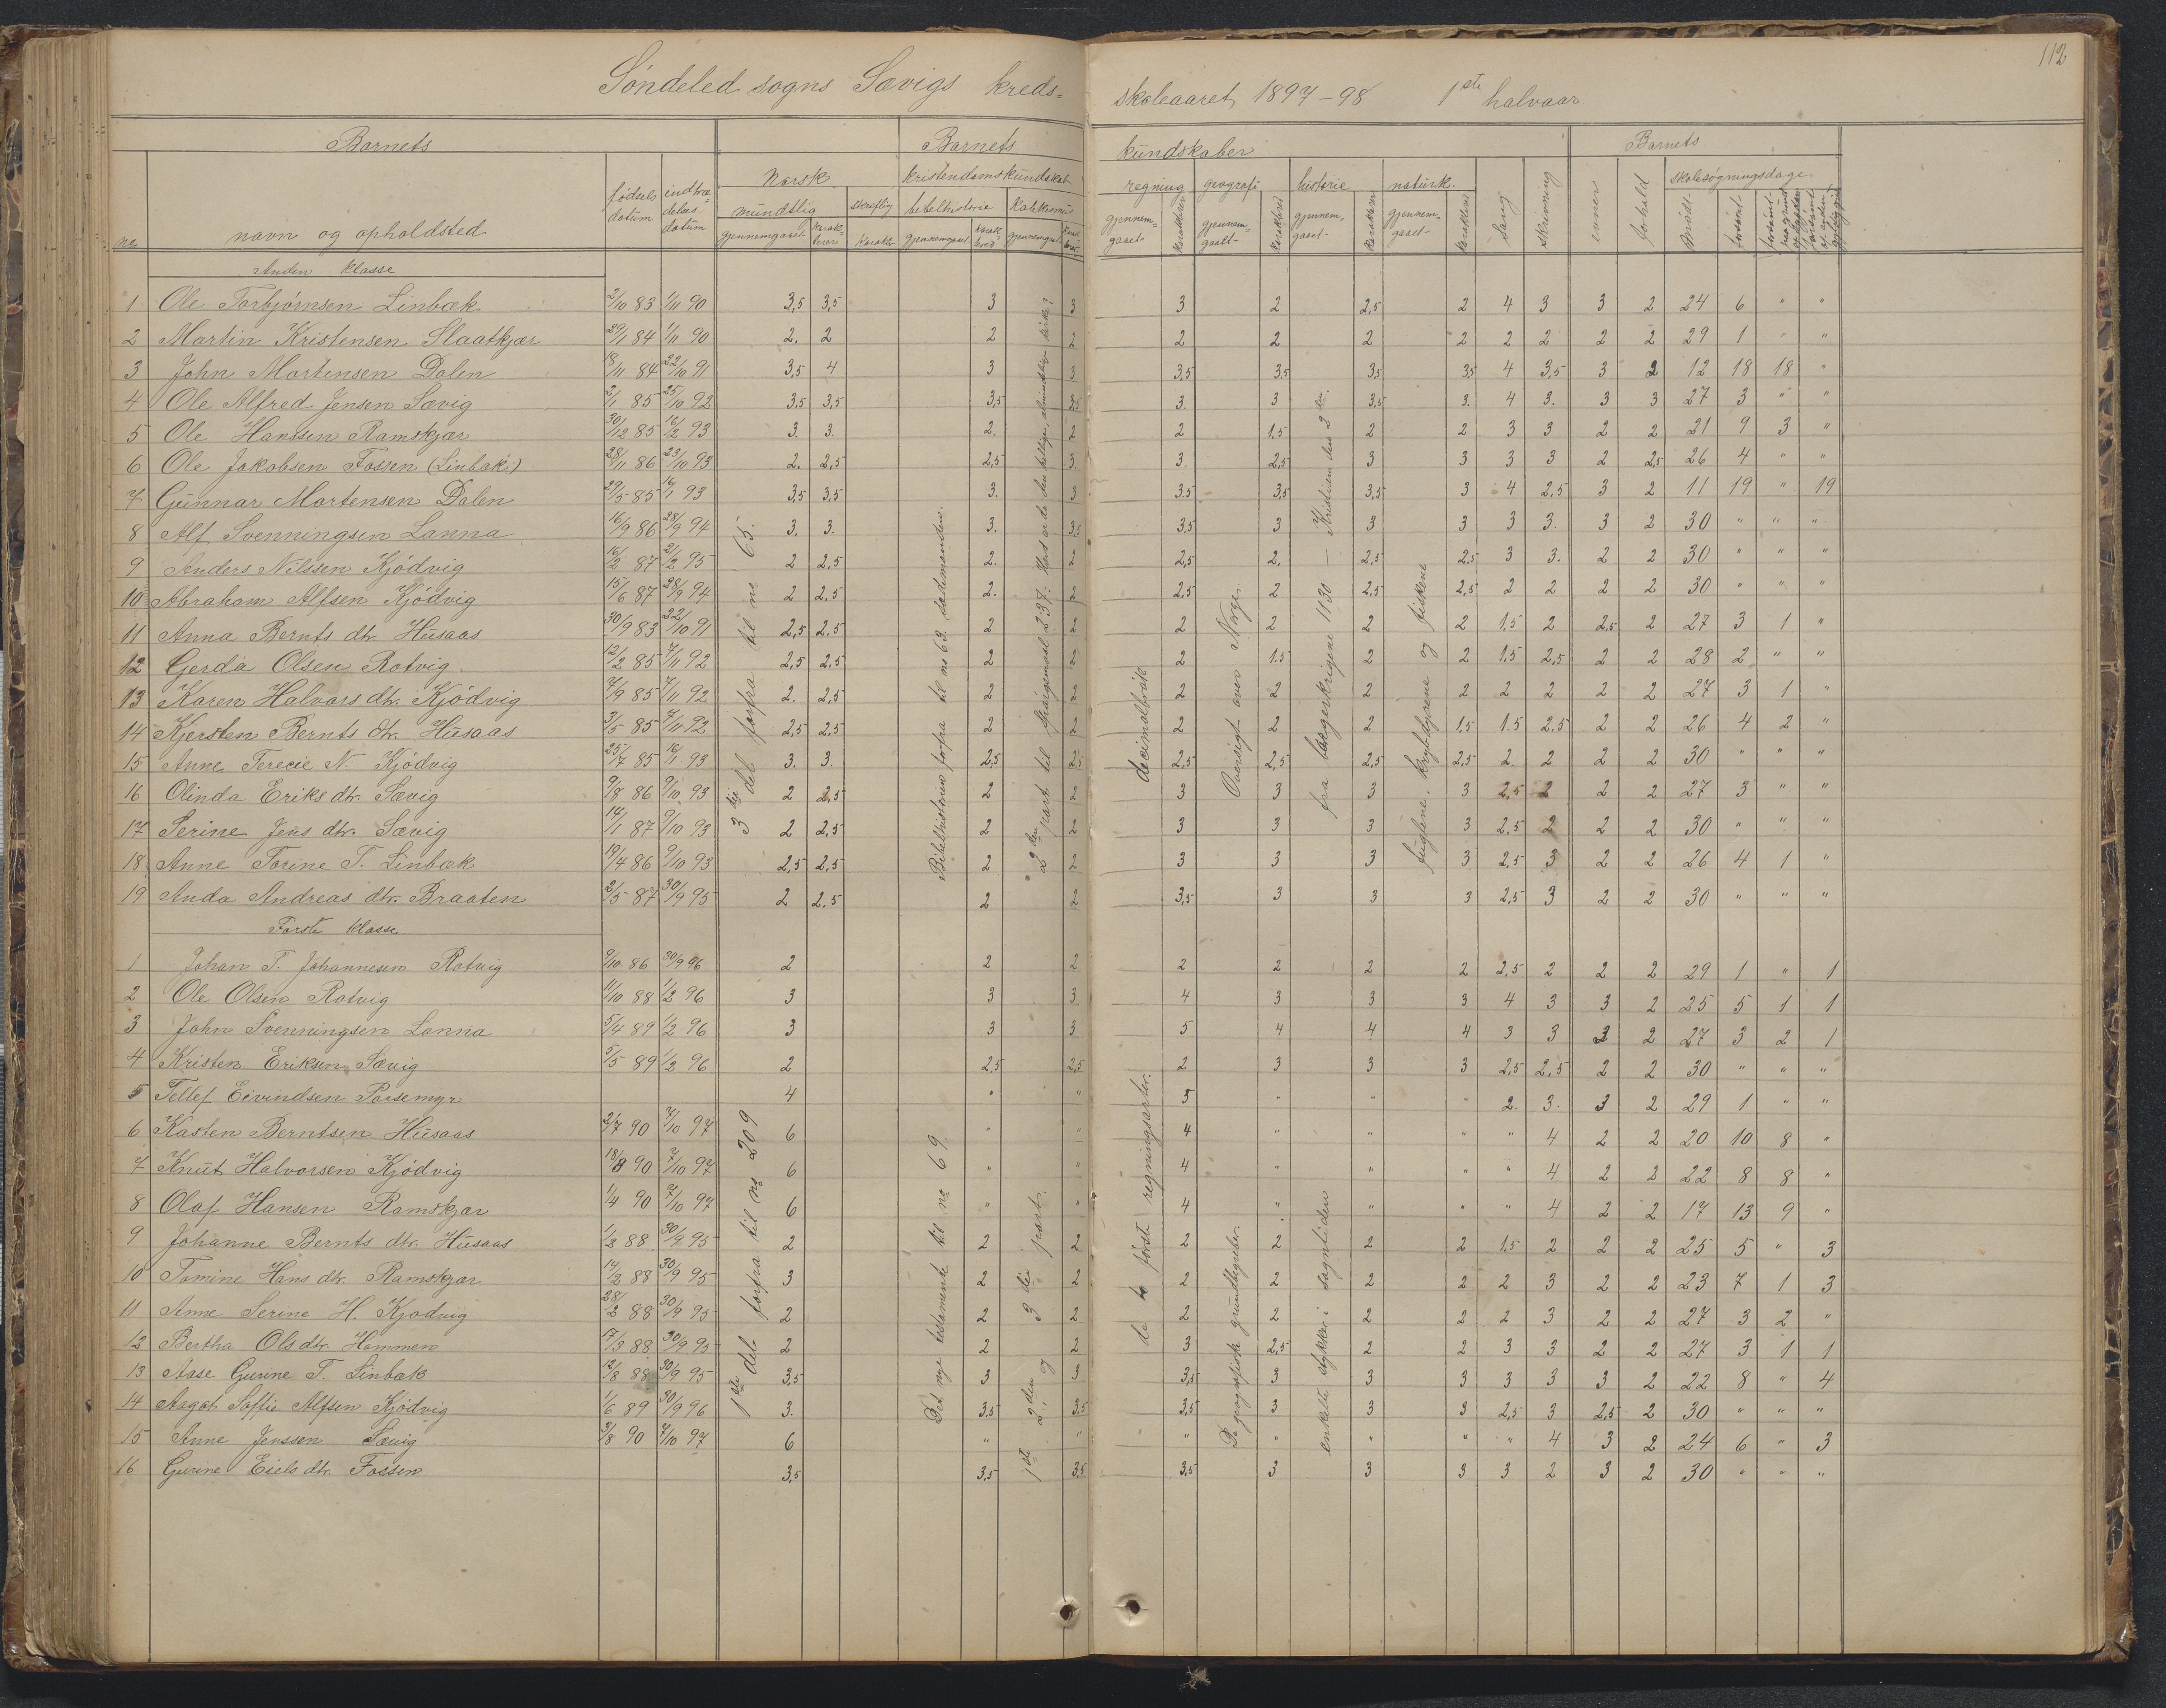 112
Søndeled sogns Sævigs kreds- skoleaaret 1897-98 1ste halvaar
Barnets Barnets kundskaber Barnets
Norsk kristendomskundskab regning geografi historie naturk. Sang Skrivning evner forhold skolesøgningsdage
no navn og opholdsted fødsels datum indtrædelses datum mundtlig skriftlig bibelhistorie katekismus
gjennemgaaet karakter gjennemgaaet gjennemgaaet gjennemgaaet karakter gjennemgaaet karakter gjennemgaaet karakter gjennemgaaet karakter mødt forsømt
Anden klasse
1 Ole Torbjørnsen Linbæk 2/10 83 1/11 90 3,5 3,5 3 3 3 2 2,5 2 4 3 3 2 24 6 " "
2 Martin Kristensen Slaatkjær 29/1 84 1/11 90 2. 2 2 2 2 2 2 2 2 2 2 2 29 1 " "
3 John Mortensen Dalen 18/11 84 22/10 91 3,5 4 3 3 3,5 3,5 3,5 3,5 4 3,5 3 2 12 18 18 "
4 Ole Alfred Jensen Sævig 2/1 85 25/10 92 3,5 3,5 3,5 3,5 3. 3 3,5 3. 4 3. 3 3 27 3 " "
5 Ole Hanssen Ramskjær 30/12 85 16/2 93 3. 3. 2. 2 2 1.5 2 2 3 3 2 2 21 9 3 "
6 Ole Jakobsen Fossen (Linbæk) 28/11 86 23/10 93 2. 2,5 2,5 3. 3. 2,5 3 3 3 3 2 2,5 26 4 " "
7 Gunnar Mortensen Dalen 29/5 85 16/1 93 3,5 3,5 3. 3 3.5 3,5 3,5 3 4 2,5 3 2 11 19 " 19
8 Alf Svenningsen Lanna 16/9 86 28/9 94 3. 3. 3. 3,5 3,5 3 3 3 3 3. 3 2 30 " " "
9 Anders Nilssen Kjødvig 16/2 87 2/2 95 2 2,5 2. 2 2,5 2. 2,5 2,5 3 3. 2 2 30 " " "
10 Abraham Alfsen Kjødvig 15/6 87 28/9 94 2 2,5 2. 2 2,5 2 2,5 2,5 2 2 2 2 30 " " "
11 Anna Bernts dtr. Husaas 30/9 83 22/10 91 2,5 2,5 2 2 2 2 2 2 1.5 2 2,5 2 27 3 1 "
12 Gerda Olsen Rotvig 12/2 85 7/11 92 2,5 2,5 2 2 2 1.5 2 2 1.5 2,5 2 2 28 2 " "
13 Karen Halvors dtr. Kjødvig 7/9 85 7/11 92 2. 2,5 2 2 2 2 2 2 2 2 2 2 27 3 1 "
14 Kjersten Bernts dtr. Husaas 3/5 85 7/11 92 2,5 2,5 2 2 2 2 2 1,5 1.5 2,5 2 2 26 4 2 "
15 Anne Terecie N. Kjødvig 25/7 85 16/1 93 3. 3. 2,5 2,5 2,5 2,5 2,5 2,5 2. 2 2 2 30 " " "
16 Olinda Eriks dtr. Sævig 9/8 86 9/10 93 2 2,5 2 2 3 3 3 3 2,5 2 2 2 27 3 " "
17 Serine Jens dtr. Sævig 14/1 87 9/10 93 2 2,5 2 2 3 3 3 3 2,5 2 2 2 30 " " "
18 Anne Torine T. Linbæk 19/4 86 9/10 93 2,5 2,5 2 2 3 3 3 3 2,5 3 2 2 26 4 1 "
19 Anda Andreas dtr. Braaten 2/5 87 30/9 95 2 2,5 2 2 3,5 3 3 3 2,5 3 2 2 30 " " "
3die del forfra til no 65.
Bibelhistorien forfra til no 63. sædemanden.
2den part til Spørgsmaal 237. Hvad er da den hellige, almindelige kirke?
decimalbrøk
Oversigt over Norge.
fra borgerkrigene 1130 – Kristian den 2den.
fuglene, krybdyrene og fiskene
Første klasse
1 Johan T. Johannesen Rotvig 9/10 86 30/9 96 2 2 2 2 2 2 2 2,5 2 2 2 29 1 " 1
2 Ole Olsen Rotvig 11/10 88 1/2 96 3 3 3. 4 3 3 3 4 3 3 2 25 5 1 1
3 John Svenningsen Lanna 5/4 89 1/2 96 3 3 3. 5 4 4 4 3 3 3 2 27 3 2 1
4 Kristen Eriksen Sævig 5/5 89 1/2 96 2 2,5 2,5 2 3 3 3 2,5 2,5 2 2 30 " " "
5 Tellef Eivindsen Porsemyr 4 " " 5 " " " 2. 3. 3 2 29 1 " "
6 Kasten Berntsen Husaas 2/7 90 7/10 97 6 " " 4 " " " " 4 2 2 20 10 8 "
7 Knut Halvorsen Kjødvig 18/8 90 7/10 97 6 " " 4 " " " " 4 2 2 22 8 8 "
8 Olaf Hansen Ramskjær 1/4 90 7/10 97 6 " " 4 " " " " 4 2 2 17 13 9 "
9 Johanne Bernts dtr. Husaas 1/2 88 30/9 95 2 2 2 2 2 2 2 1.5 2 2 2 25 5 " 3
10 Tomine Hans dtr. Ramskjær 14/2 88 30/9 95 3 2 2 2 2 2 2 2 3 2 2 23 7 1 3
11 Anne Serine H. Kjødvig 28/2 88 30/9 95 2 2 2 2 2 2 2 2 3 2 2 27 3 2 "
12 Bertha Ols dtr. Hammen 17/3 88 30/9 95 2 2 2 3 2,5 2 2 3 3 2 2 27 3 1 1
13 Aase Gurine T. Linbæk 12/8 88 30/9 95 3,5 3 3 3,5 3 3 3 3 3 3 2 22 8 " 4
14 Aagot Soffie Alfsen Kjødvig 1/6 89 30/9 96 3. 3.5 3.5 3,5 3 3 3 2,5 3 2,5 2 30 " " "
15 Anne Jenssen Sævig 3/8 90 7/10 97 6 " " " " " " " 4 3 2 24 6 " 3
16 Gurine Eiels dtr. Fossen 3,5 3,5 3,5 3,5 3 3 3 3 2 3 2 30 " " "
1ste del forfra til no 209
Det nye testamente til no 69.
1ste, 2den og 3die part.
de to første regningsarter.
De geografiske grundbegreber.
enkelte stykker i sagntiden